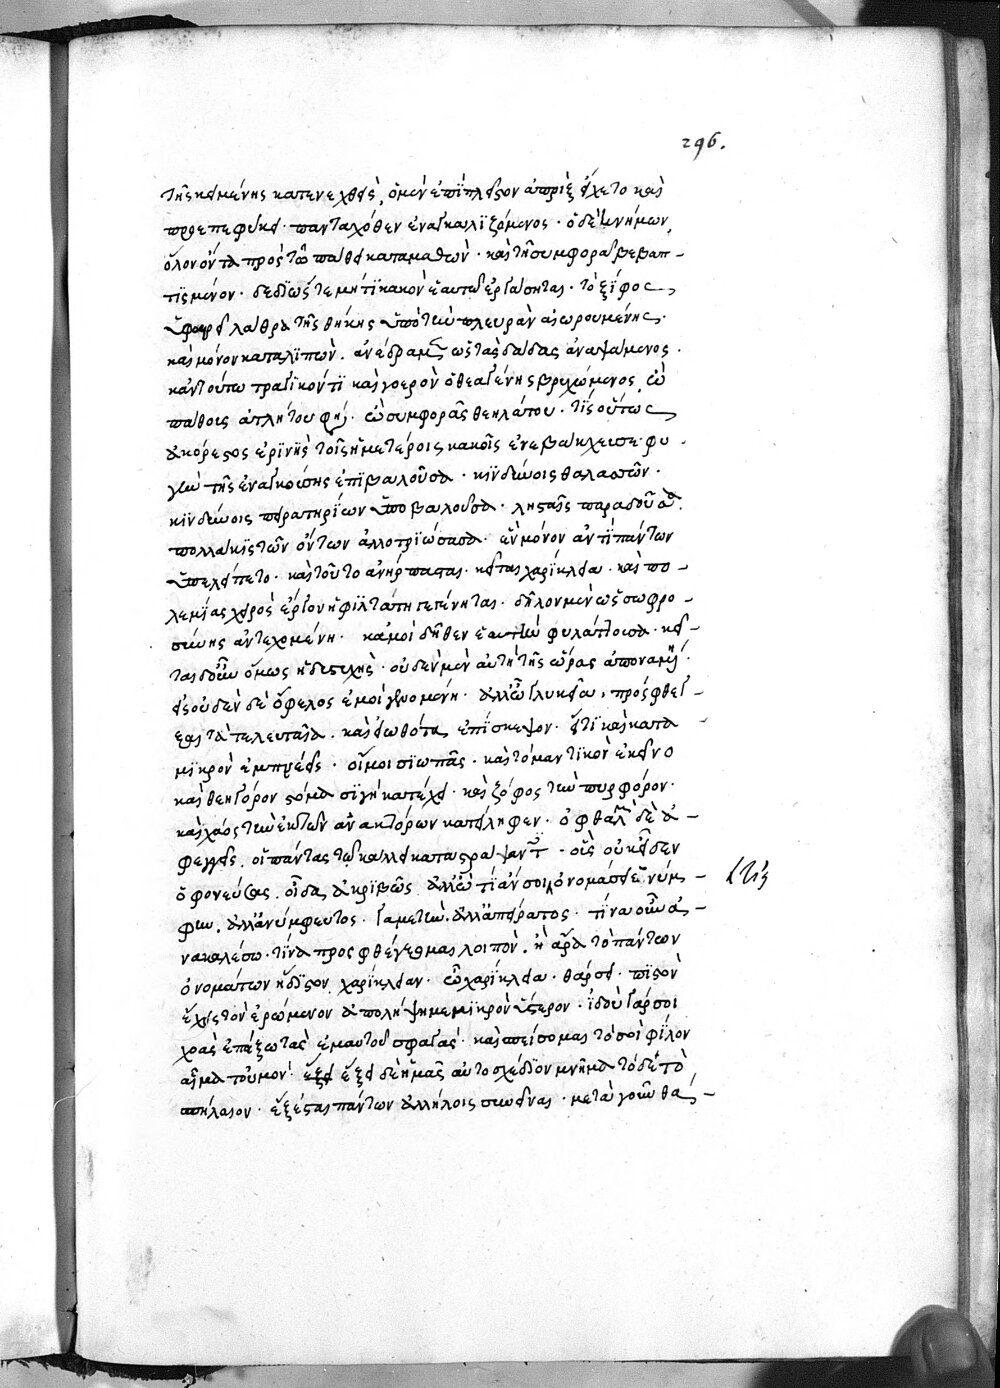 296.
τῆς κειμένης κατενεχθεὶς, ὁ μὲν ἐπὶ πλεῖστον ἀπρὶξ εἴχετο καὶ
προσεπεφύκει· πανταχόθεν ἐναγκαλιζόμενος· ὁ δὲ κνήμων,
ὅλον ὄντα πρὸς τῶ πάθει καταμαθὼν· καὶ τῆ συμφορᾶ βεβαπ-
τισμένον· δεδιώς τε μή τι κακὸν ἑαυτὸν ἐργάσηται· τὸ ξίφος
ὑφαιρεῖ λάθρα τῆς θήκης ὑπὸ τὴν πλευρὰν αἰωρουμένης·
καὶ μόνον καταλιπὼν. ἀνέδραμεν ὡς τὰς δᾶδας ἀναψάμενος.
κἀν τούτω τραγικόν τι καὶ γοερὸν ὁ θεαγένης βρυχώμενος, ὢ
πάθους ἀτλήτου φησί· ὢ συμφορᾶς θεηλάτου. τίς οὕτως
ἀκόρεστος ἐρινὺς τοῖς ἡμετέροις κακοῖς ἐνεβάκχευσε φυ-
γὴν τῆς ἐναγκούσης ἐπιβαλοῦσα· κινδύνοις θαλασσῶν·
κινδύνοις πειρατηρίων ὑποβαλοῦσα· ληισταῖς παραδοῦσα.
πολλάκις τῶν ὄντων ἀλλοτριώσασα· ἓν μόνον ἀντὶ πάντων
ὑπελείπετο· καὶ τοῦτο ἀνήρπασται· κεῖται χαρίκλεια· καὶ πο-
λεμίας χειρὸς ἔργον ἡ φιλτάτη γεγένηται. δῆλον μὲν ὡς σωφρο-
σύνης ἀντεχομένη· κἀμοὶ δῆθεν ἑαυτὴν φυλάττουσα· κεῖ-
ται δ οὖν ὅμως ἡ δυστυχὴς· οὐδὲν μὲν αὐτὴ τῆς ὥρας ἀποναμένη·
εἰς οὐδὲν δὲ ὄφελος ἐμοὶ γενομένη. ἀλλ ὦ γλυκεῖα, πρόσφθεγ-
ξαι τὰ τελευταῖα. καὶ εἰωθότα, ἐπίσκηψον· εἴ τι καὶ κατὰ
μικρὸν ἐμπνεῖς· οἴμοι σιωπᾶς· καὶ τὸ μαντικὸν ἐκεῖνο
καὶ θεηγόρον στόμα σιγὴ κατέχει· καὶ ζόφος τὴν πυρφόρον·
καὶ χάος τὴν ἐκ τῶν ἀνακτόρων κατείληφεν· ὀφθαλμοὶ δὲ ἀ-
φεγγεῖς. οἱ πάντας τῶ κάλλει καταστράψαντες· οὓς οὐκ εἶδεν
ὁ φονεύσας. οἶδα ἀκριβῶς. ἀλλ ὦ τί ἄν σοι ὀνομάσειε νύμ-
φην. ἀλλ ἀνύμφευτος. γαμετὴν. ἀλλ ἀπείρατος· τίνα οὖν ἀ-
νακαλέσω· τίνα προσφθέγξομαι λοιπὸν. ἢ ἆρα τὸ πάντων
ὀνομάτων ἥδιστον χαρίκλειαν· ὦ χαρίκλεια· θάρσει· πιστὸν
ἔχεις τὸν ἐρώμενον ἀπολήψη με μικρὸν ὕστερον· ἰδοὺ γάρ σοι
χοὰς ἐπάξω τὰς ἐμαυτοῦ σφαγάς· καὶ σπείσομαι τὸ σοὶ φίλον
αἷμα τοὐμόν· ἕξει ἕξει δὲ ἡμᾶς αὐτοσχέδιον μνῆμα τόδε τὸ
σπήλαιον· ἐξέσται πάντων ἀλλήλοις συνεῖναι· μετὰ γοῦν θά-